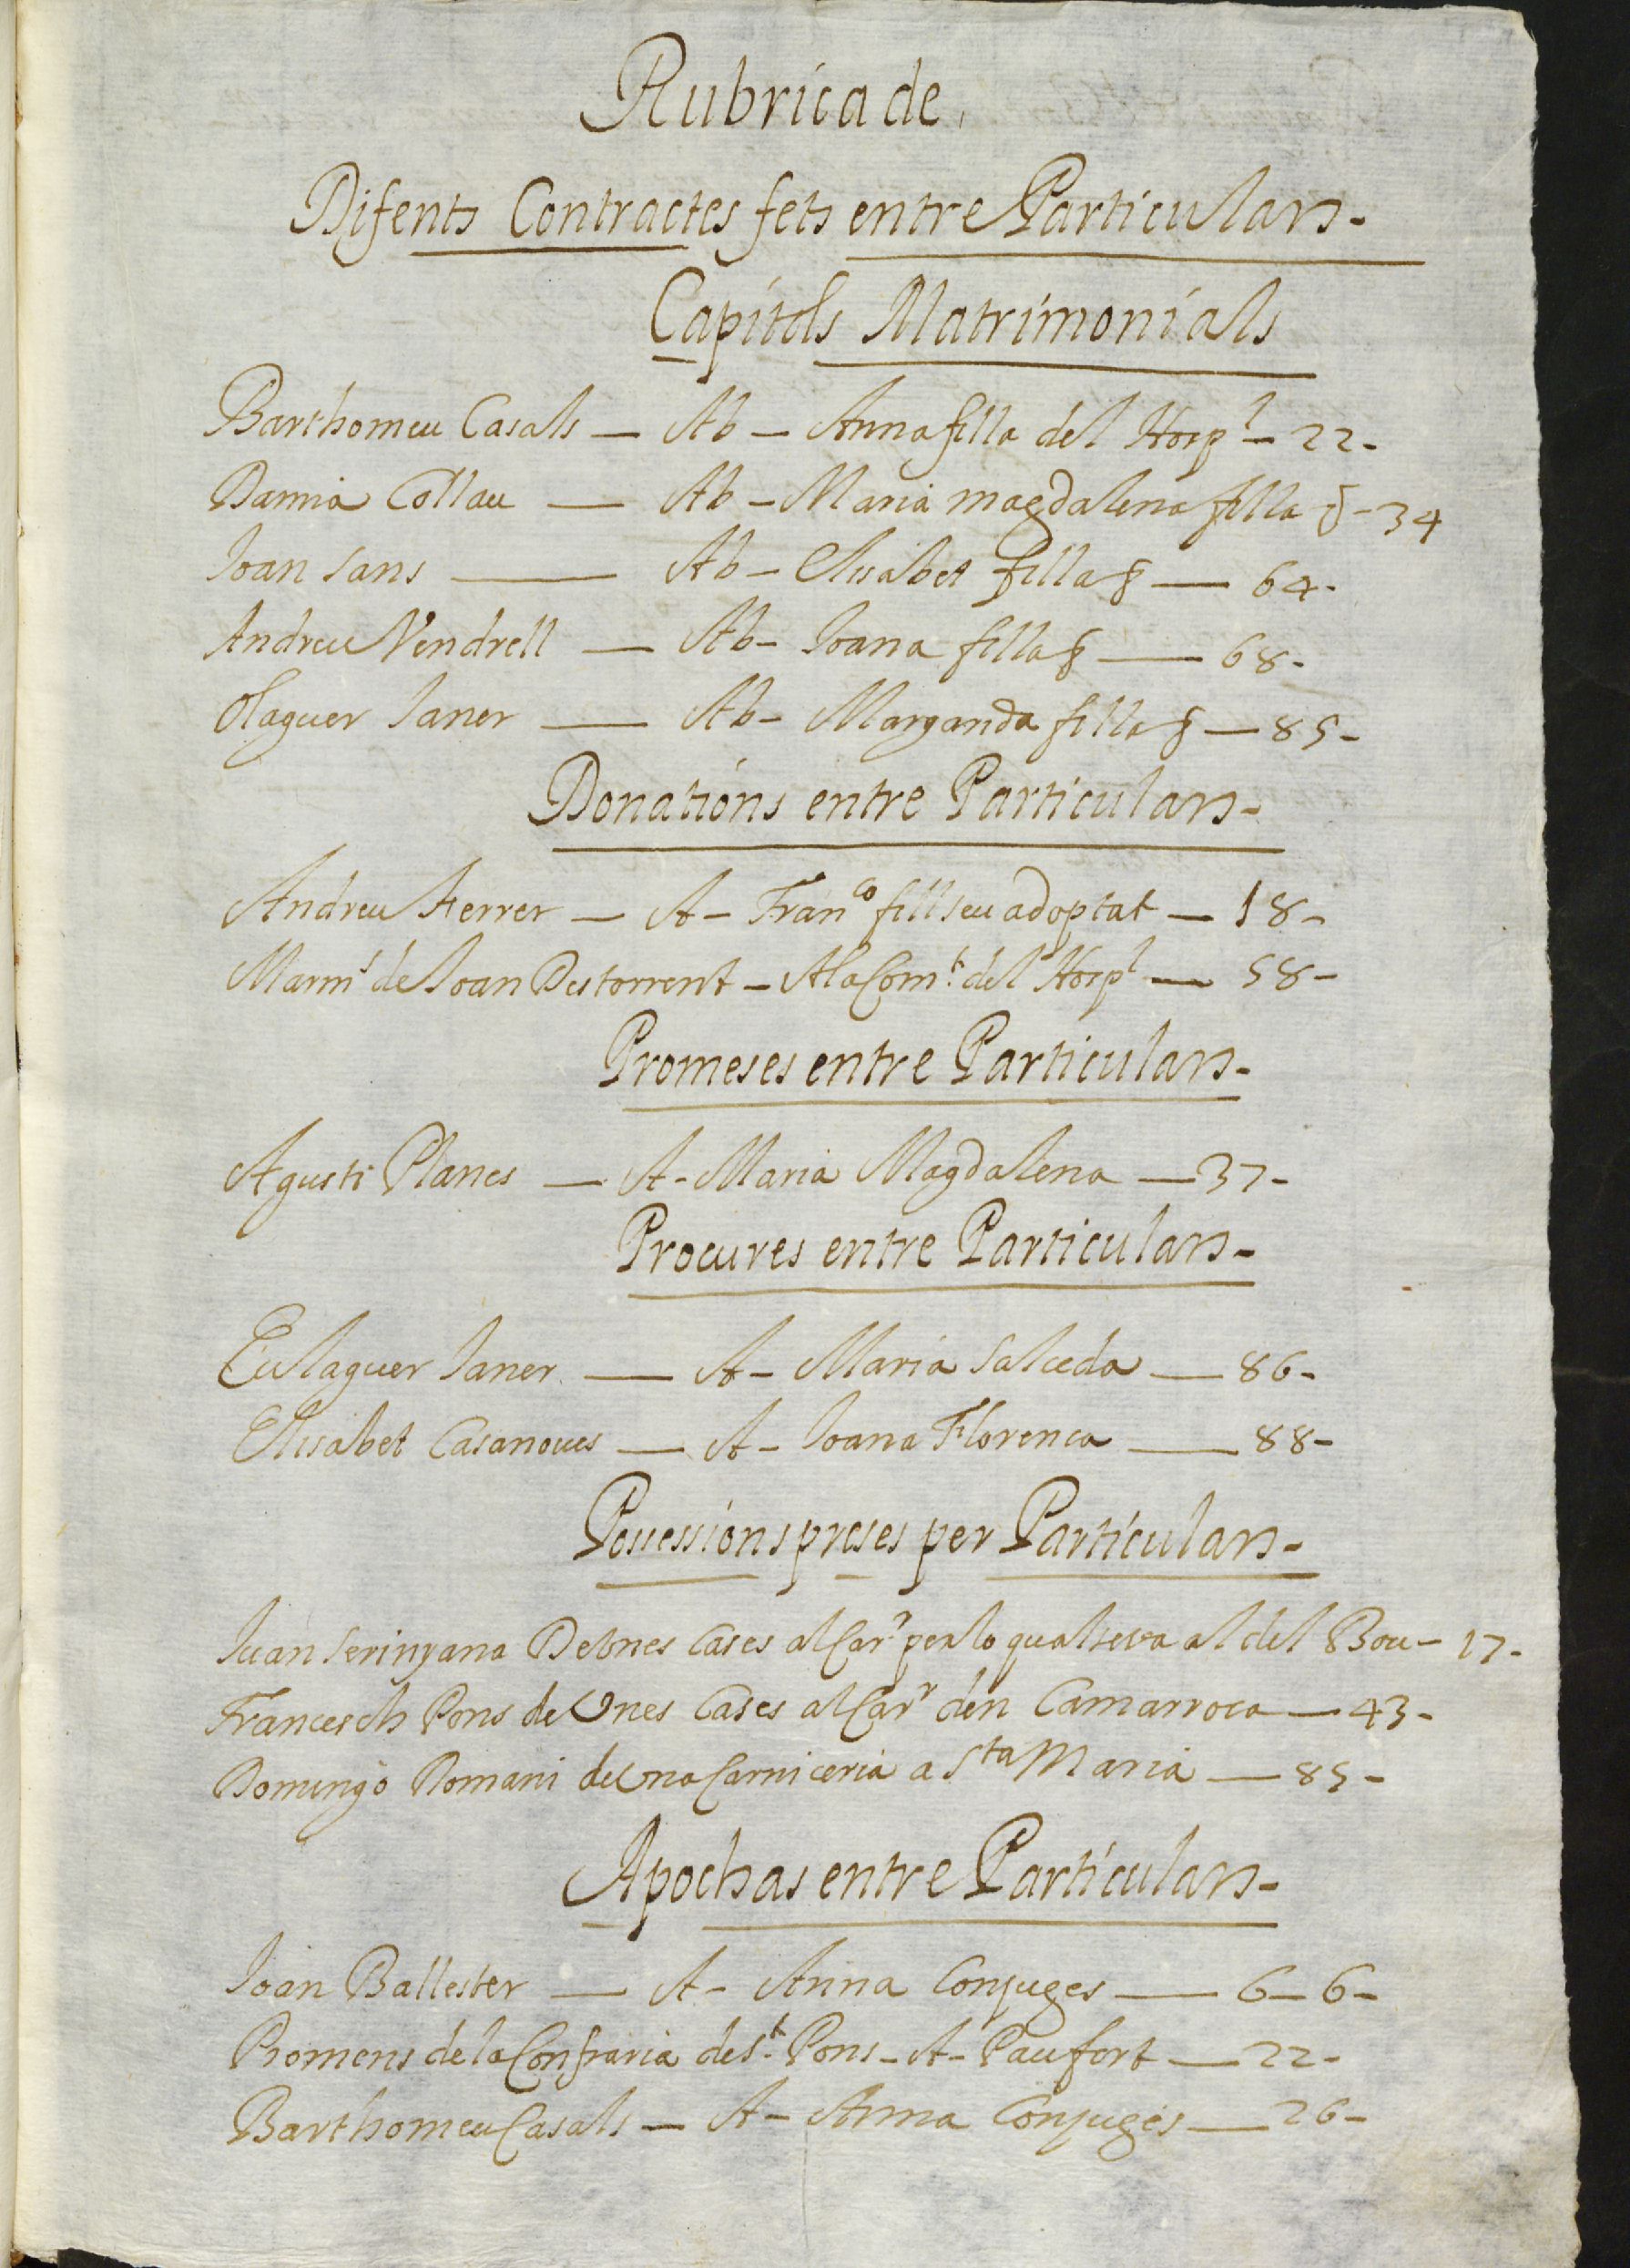 Rubrica de,
Difents Contractes fets entre Particulars-
Capitols Matrimonials
Barthomeu Casals — Ab — Anna filla del Hospl — 22-
Damia Collau — Ab — Maria magdalena filla — 34
Joan Sans — Ab — Elisabet filla — 64-
Andreu Vendrell — Ab — Joana filla — 68-
Olaguer Janer — Ab — Margarida filla — 85-
Donations entre Particulars-
Andreu Ferrer — A — Franco fill seu adoptat — 18-
de Joan Destorrent — A la Comt. del Hospl — 58-
Promeses entre Particulars-
Agusti Planes — A — Maria Magdalena — 37-
Procures entre Particulars-
Eulaguer Janer — A — Maria Salceda — 86-
Elisabet Casanoves — A — Joana Florenca — 88-
Possessions preses per Particulars-
Juan Serinyana De Unes Cases al Carr per lo qual se va al del Bou — 17-
Francesch Pons de Unes Cases al Carr den Camarroca — 43-
Domingo Romani de Una Carniceria a Sta Maria — 85-
Apochas entre Particulars-
Joan Ballester — A — Anna Conjuges — 6 — 6-
Promens de la Confraria de St. Pons — A — Pau fort — 22-
Barthomeu Casals — A — Anna Conjuges — 26-